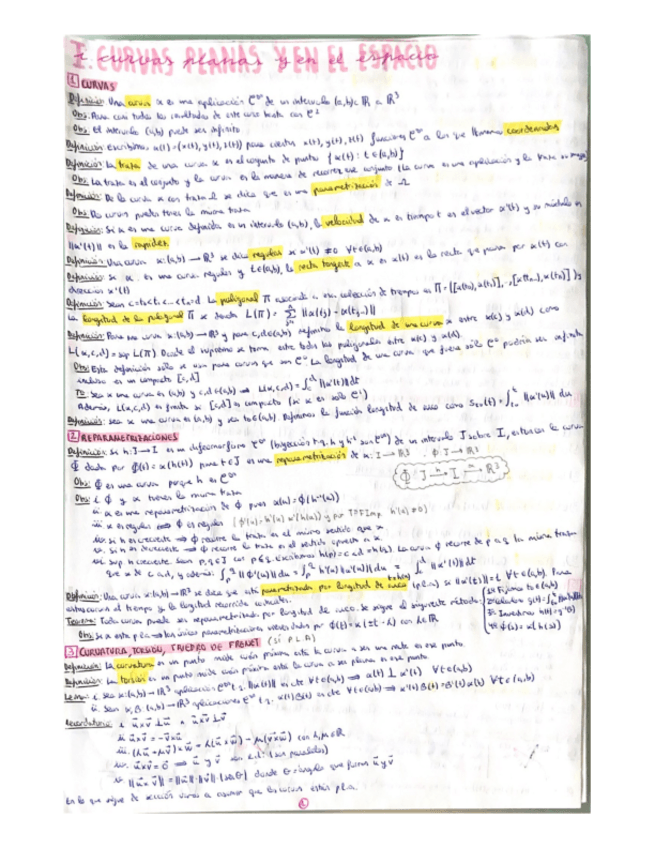 I. CURVAS PLANAS Y EN EL ESPACIO
1 CURVAS
Definición: Una curva α es una aplicación C^∞ de un intervalo (a,b)⊂ℝ a ℝ³
Obs: Para casi todos los resultados de este curso basta con C²
Obs: El intervalo (a,b) puede ser infinito
Definición: Escribimos α(t)=(x(t), y(t), z(t)) para ciertas x(t), y(t), z(t) funciones C^∞ a las que llamamos coordenadas
Definición: La traza de una curva α es el conjunto de puntos {α(t) : t∈(a,b)}
Obs: La traza es el conjunto y la curva es la manera de recorrer ese conjunto (La curva es una aplicación y la traza su imagen)
Definición: De la curva α con traza Ω se dice que es una parametrización de Ω
Obs: Dos curvas pueden tener la misma traza
Definición: Si α es una curva definida en un intervalo (a,b), la velocidad de α en tiempo t es el vector α'(t) y su módulo es
||α'(t)|| es la rapidez
Definición: Una curva α:(a,b)→ℝ³ se dice regular si α'(t)≠0 ∀t∈(a,b)
Definición: Si α es una curva regular y t∈(a,b), la recta tangente a α en α(t) es la recta que pasa por α(t) con
dirección α'(t)
Definición: Sean c=t₀<t₁<...<tₙ=d. La poligonal Π asociada a esa colección de tiempos es Π={[α(t₀),α(t₁)],...,[α(tₙ₋₁),α(tₙ)]} y
la longitud de la poligonal Π es L(Π)= Σ ||α(tⱼ)-α(tⱼ₋₁)||
Definición: Para una curva α:(a,b)→ℝ³ y para c,d∈(a,b) definimos la longitud de una curva α entre α(c) y α(d) como
L(α,c,d)=sup L(Π) Donde el supremo se toma entre todas las poligonales entre α(c) y α(d).
Obs: Esta definición sólo se usa para curvas que son C^∞. La longitud de una curva que fuera sólo C⁰ podría ser infinita
incluso en un compacto [c,d]
T: Sea α una curva en (a,b) y c,d∈(a,b) ⇒ L(α,c,d)=∫ ||α'(t)||dt
Además, L(α,c,d) es finita si [c,d] es compacto (si α es sólo C¹)
Definición: sea α una curva en (a,b) y sea t₀∈(a,b). Definimos la función longitud de arco como S_{t₀}(t)=∫ ||α'(u)|| du
2 REPARAMETRIZACIONES
Definición: Si h:J→I es un difeomorfismo C^∞ (biyección t.q. h y h⁻¹ son C^∞) de un intervalo J sobre I, entonces la curva
ϕ dada por ϕ(t)=α(h(t)) para t∈J es una reparametrización de α: I→ℝ³. ϕ: J→ℝ³
ϕ J →h I →α ℝ³
Obs: ϕ es una curva porque h es C^∞
Obs: i. ϕ y α tienen la misma traza
ii. α es una reparametrización de ϕ pues α(u)=ϕ(h⁻¹(u))
iii. α es regular ⇔ ϕ es regular (ϕ'(u)=h'(u) α'(h(u)) y por TªFImp. h'(u)≠0)
iv. si h es creciente ⇒ ϕ recorre la traza en el mismo sentido que α
v. si h es decreciente ⇒ ϕ recorre la traza en el sentido opuesto a α
vi. sup h creciente. Sean p,q∈J con p≤q. Escribimos h(p)=c, d=h(q). La curva ϕ recorre de p a q la misma traza
que α de c a d, y además: ∫ ||ϕ'(u)||du = ∫ h'(u)||α'(h(u))||du = ∫ ||α'(t)||dt
Definición: Una curva α:(a,b)→ℝ³ se dice que está parametrizada por longitud de arco (p.l.a) si ||α'(t)||=1 ∀t∈(a,b). Para
estas curvas el tiempo y la longitud recorrida coinciden.
Teorema: Toda curva puede ser reparametrizada por longitud de arco. Se sigue el siguiente método:
Obs: Si α está p.l.a ⇒ las únicas parametrizaciones vienen dadas por ϕ(t)=α(±t-λ) con λ∈ℝ
3 CURVATURA, TORSIÓN, TRIEDRO DE FRENET (SI P.L.A)
Definición: La curvatura en un punto mide cuán próxima está la curva a ser una recta en ese punto.
Definición: La torsión en un punto mide cuán próxima está la curva a ser plana en ese punto
Lema: i. Sea α:(a,b)→ℝ³ aplicación C^∞ t.q. ||α(t)|| es cte ∀t∈(a,b) ⇒ α(t)⊥α'(t) ∀t∈(a,b)
ii. Sean α,β:(a,b)→ℝ³ aplicaciones C^∞ t.q. α(t)β(t) es cte ∀t∈(a,b) ⇒ α'(t)β(t)=-β'(t)α(t) ∀t∈(a,b)
Recordatorio: i. u×v⊥u ∧ u×v⊥v
ii. u×v=-v×u
iii. (λu+μv)×w = λ(u×w)+μ(v×w) con λ,μ∈ℝ
iv. u×v=0 ⇒ u y v son l.d. (son paralelos)
v. ||u×v||=||u||·||v||·|senθ| donde θ=ángulo que forman u y v
En lo que sigue de sección vamos a asumir que las curvas están p.l.a.
1